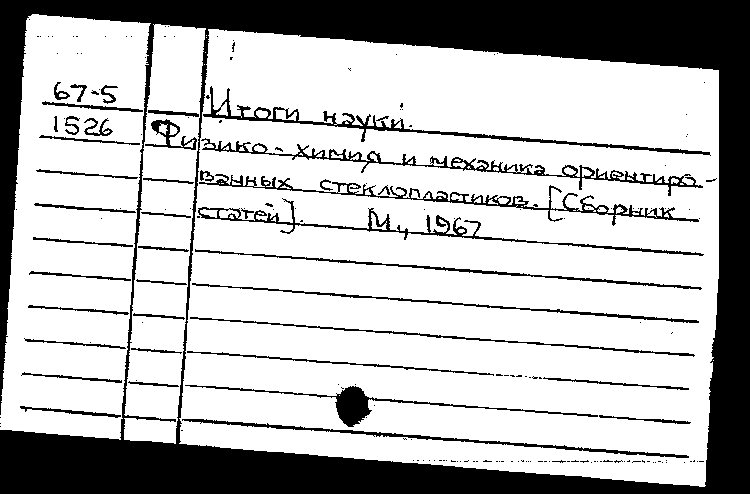 67-5 Итоги науки.
1526 Физико-химия и механика ориентиро-
ванных стеклопластиков. [Сборник
статей]. М., 1967